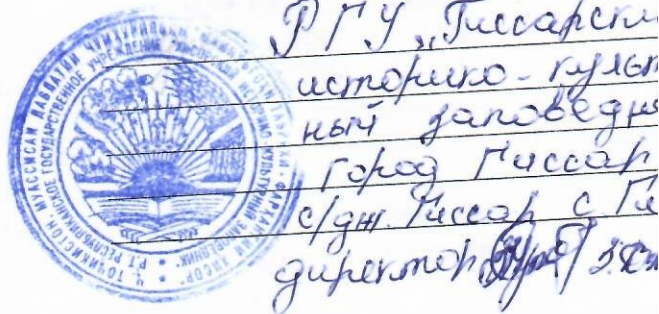 РГУ „Гиссарски
историко-культ
ный заповедн
город Гиссар
с/дж. Гиссар с. Ги
директор
МУАССИСАИ ДАВЛАТИИ ҶУМҲУРИЯВИИ
Р.Т. РЕСПУБЛИКАНСКОЕ ГОСУДАРСТВЕННОЕ УЧРЕЖДЕНИЕ ИСТОРИКО-КУЛЬТУРНЫЙ ЗАПОВЕДНИК